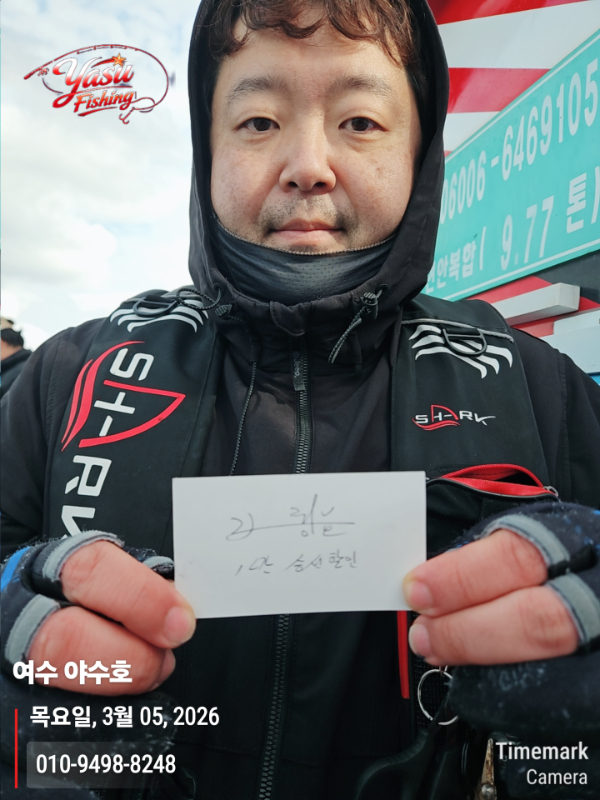 Yasu
Fishing
06006-6469105
안복합( 9.77 톤)
SHARK
SHARK
2) 릴
1만 승선할인
여수 야수호
목요일, 3월 05, 2026
010-9498-8248
Timemark
Camera